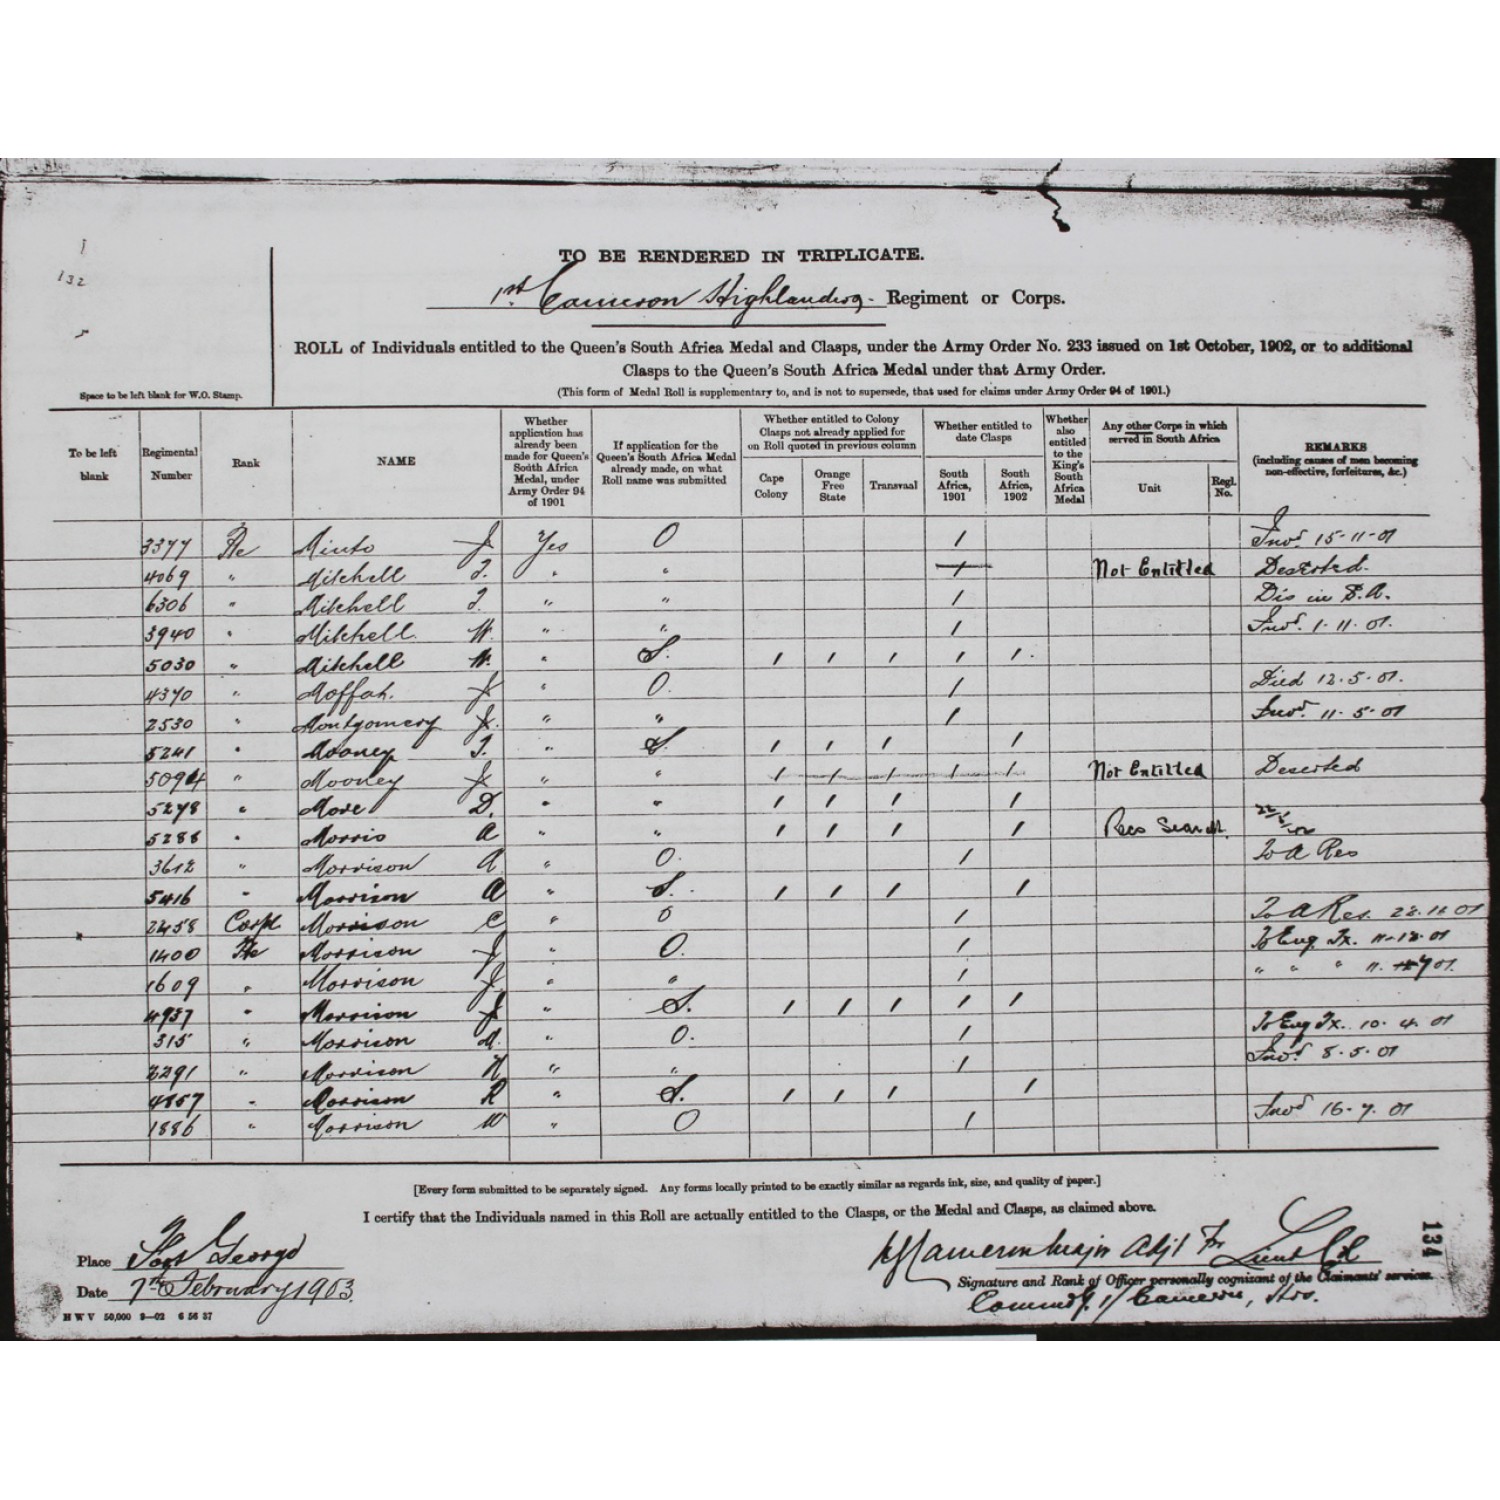 132
TO BE RENDERED IN TRIPLICATE.
1st Cameron Highlanders Regiment or Corps.
ROLL of Individuals entitled to the Queen's South Africa Medal and Clasps, under the Army Order No. 233 issued on 1st October, 1902, or to additional
Clasps to the Queen's South Africa Medal under that Army Order.
(This form of Medal Roll is supplementary to, and is not to supersede, that used for claims under Army Order 94 of 1901.)
Space to be left blank for W.O. Stamp.
To be left blank
Regimental Number
Rank
NAME
Whether application has already been made for Queen's South Africa Medal, under Army Order 94 of 1901
If application for the Queen's South Africa Medal already made, on what Roll name was submitted
Whether entitled to Colony Clasps not already applied for on Roll quoted in previous column
Cape Colony
Orange Free State
Transvaal
Whether entitled to date Clasps
South Africa, 1901
South Africa, 1902
Whether also entitled to the King's South Africa Medal
Any other Corps in which served in South Africa
Unit
Regl. No.
REMARKS
(including causes of men becoming non-effective, forfeitures, &c.)
3377 Pte Minto J Yes O / Invd 15-11-01
4069 " Mitchell J. " " / Not Entitled Deserted.
6306 " Mitchell J. " " / Dis in S.A.
3940 " Mitchell W. " " / Invd. 1-11-01.
5030 " Mitchell W. " S. / / / / /
4370 " Moffat J " O. / Died 12-5-01.
2530 " Montgomery J. " " / Invd. 11-5-01
5241 " Mooney J. " S / / / /
5094 " Mooney J " " / / / / / Not Entitled Deserted
5278 " More D. " " / / / /
5288 " Morris A " " / / / / Recs Search.
3612 " Morrison A " O. / To A Res
5416 " Morrison A " S. / / / /
2458 Corpl Morrison C " O / To A Res.
1400 Pte Morrison J " O. / To Eng Tx. 11-12-01
1609 " Morrison J. " " / " " " 11. 7 01.
4937 " Morrison J " S. / / / / /
315 " Morrison " O. / To Eng Tx. 10. 4. 01
" Morrison " " / Invd 8-5-01
4857 " Morrison R " S. / / / /
1886 " Morrison W " O / Invd 16-7. 01
[Every form submitted to be separately signed. Any forms locally printed to be exactly similar as regards ink, size, and quality of paper.]
I certify that the Individuals named in this Roll are actually entitled to the Clasps, or the Medal and Clasps, as claimed above.
Place Fort George
Cameron Major Adjt For Lieut Col
Signature and Rank of Officer personally cognizant of the Claimants' services.
Date 7th February 1903
Commdg. 1/ Cameron Hrs.
H W V 50,000 9—02 6 56 37
134